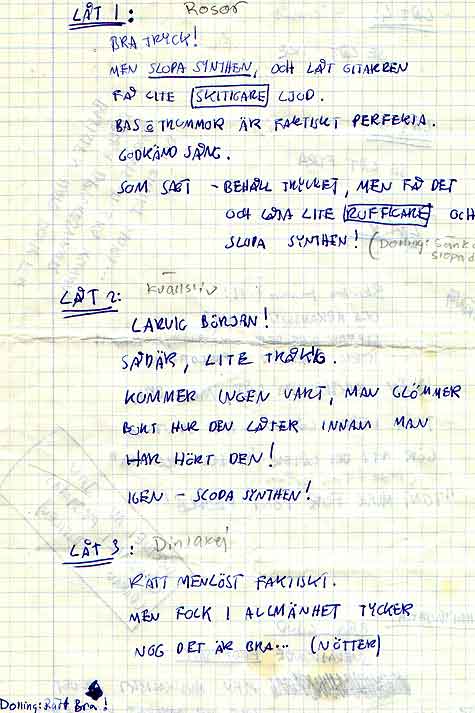 LÅT 1: Rosor
BRA TRYCK!
MEN SLOPA SYNTHEN, OCH LÅT GITARREN
FÅ LITE SKITIGARE LJUD.
BAS & TRUMMOR ÄR FAKTISKT PERFEKTA.
GODKÄND SÅNG.
SOM SAGT - BEHÅLL TRYCKET, MEN FÅ DET
OCH LÅTA LITE RUFFIGARE OCH
SLOPA SYNTHEN! (Dolling: Sänk
slopa
LÅT 2: Kvällsliv
LARVIG BÖRJAN!
SÅDÄR, LITE TRÅKIG.
KOMMER INGEN VART, MAN GLÖMMER
BORT HUR DEN LÅTER INNAN MAN
HAR HÖRT DEN!
IGEN - SLOPA SYNTHEN!
LÅT 3: Din lakej
RÄTT MENLÖST FAKTISKT.
MEN FOLK I ALLMÄNHET TYCKER
NOG DET ÄR BRA... (NÖTTER)
Dolling: Rätt Bra!